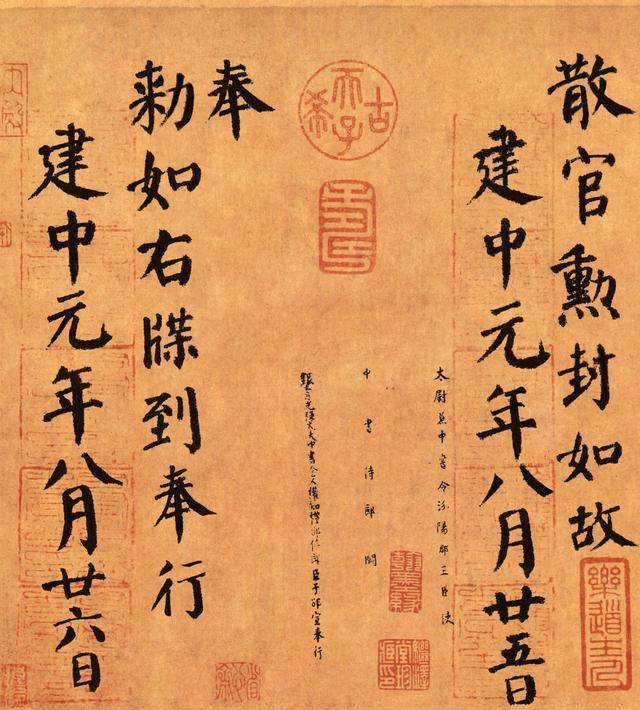 散官勲封如故
建中元年八月廿五日
太尉兼中書令汾陽郡王臣使
中書侍郎闕
銀青光禄大夫中書舍人權知禮部侍郎臣于邵宣奉行
古希天子
奉
勑如右牒到奉行
建中元年八月廿六日
樂道主人